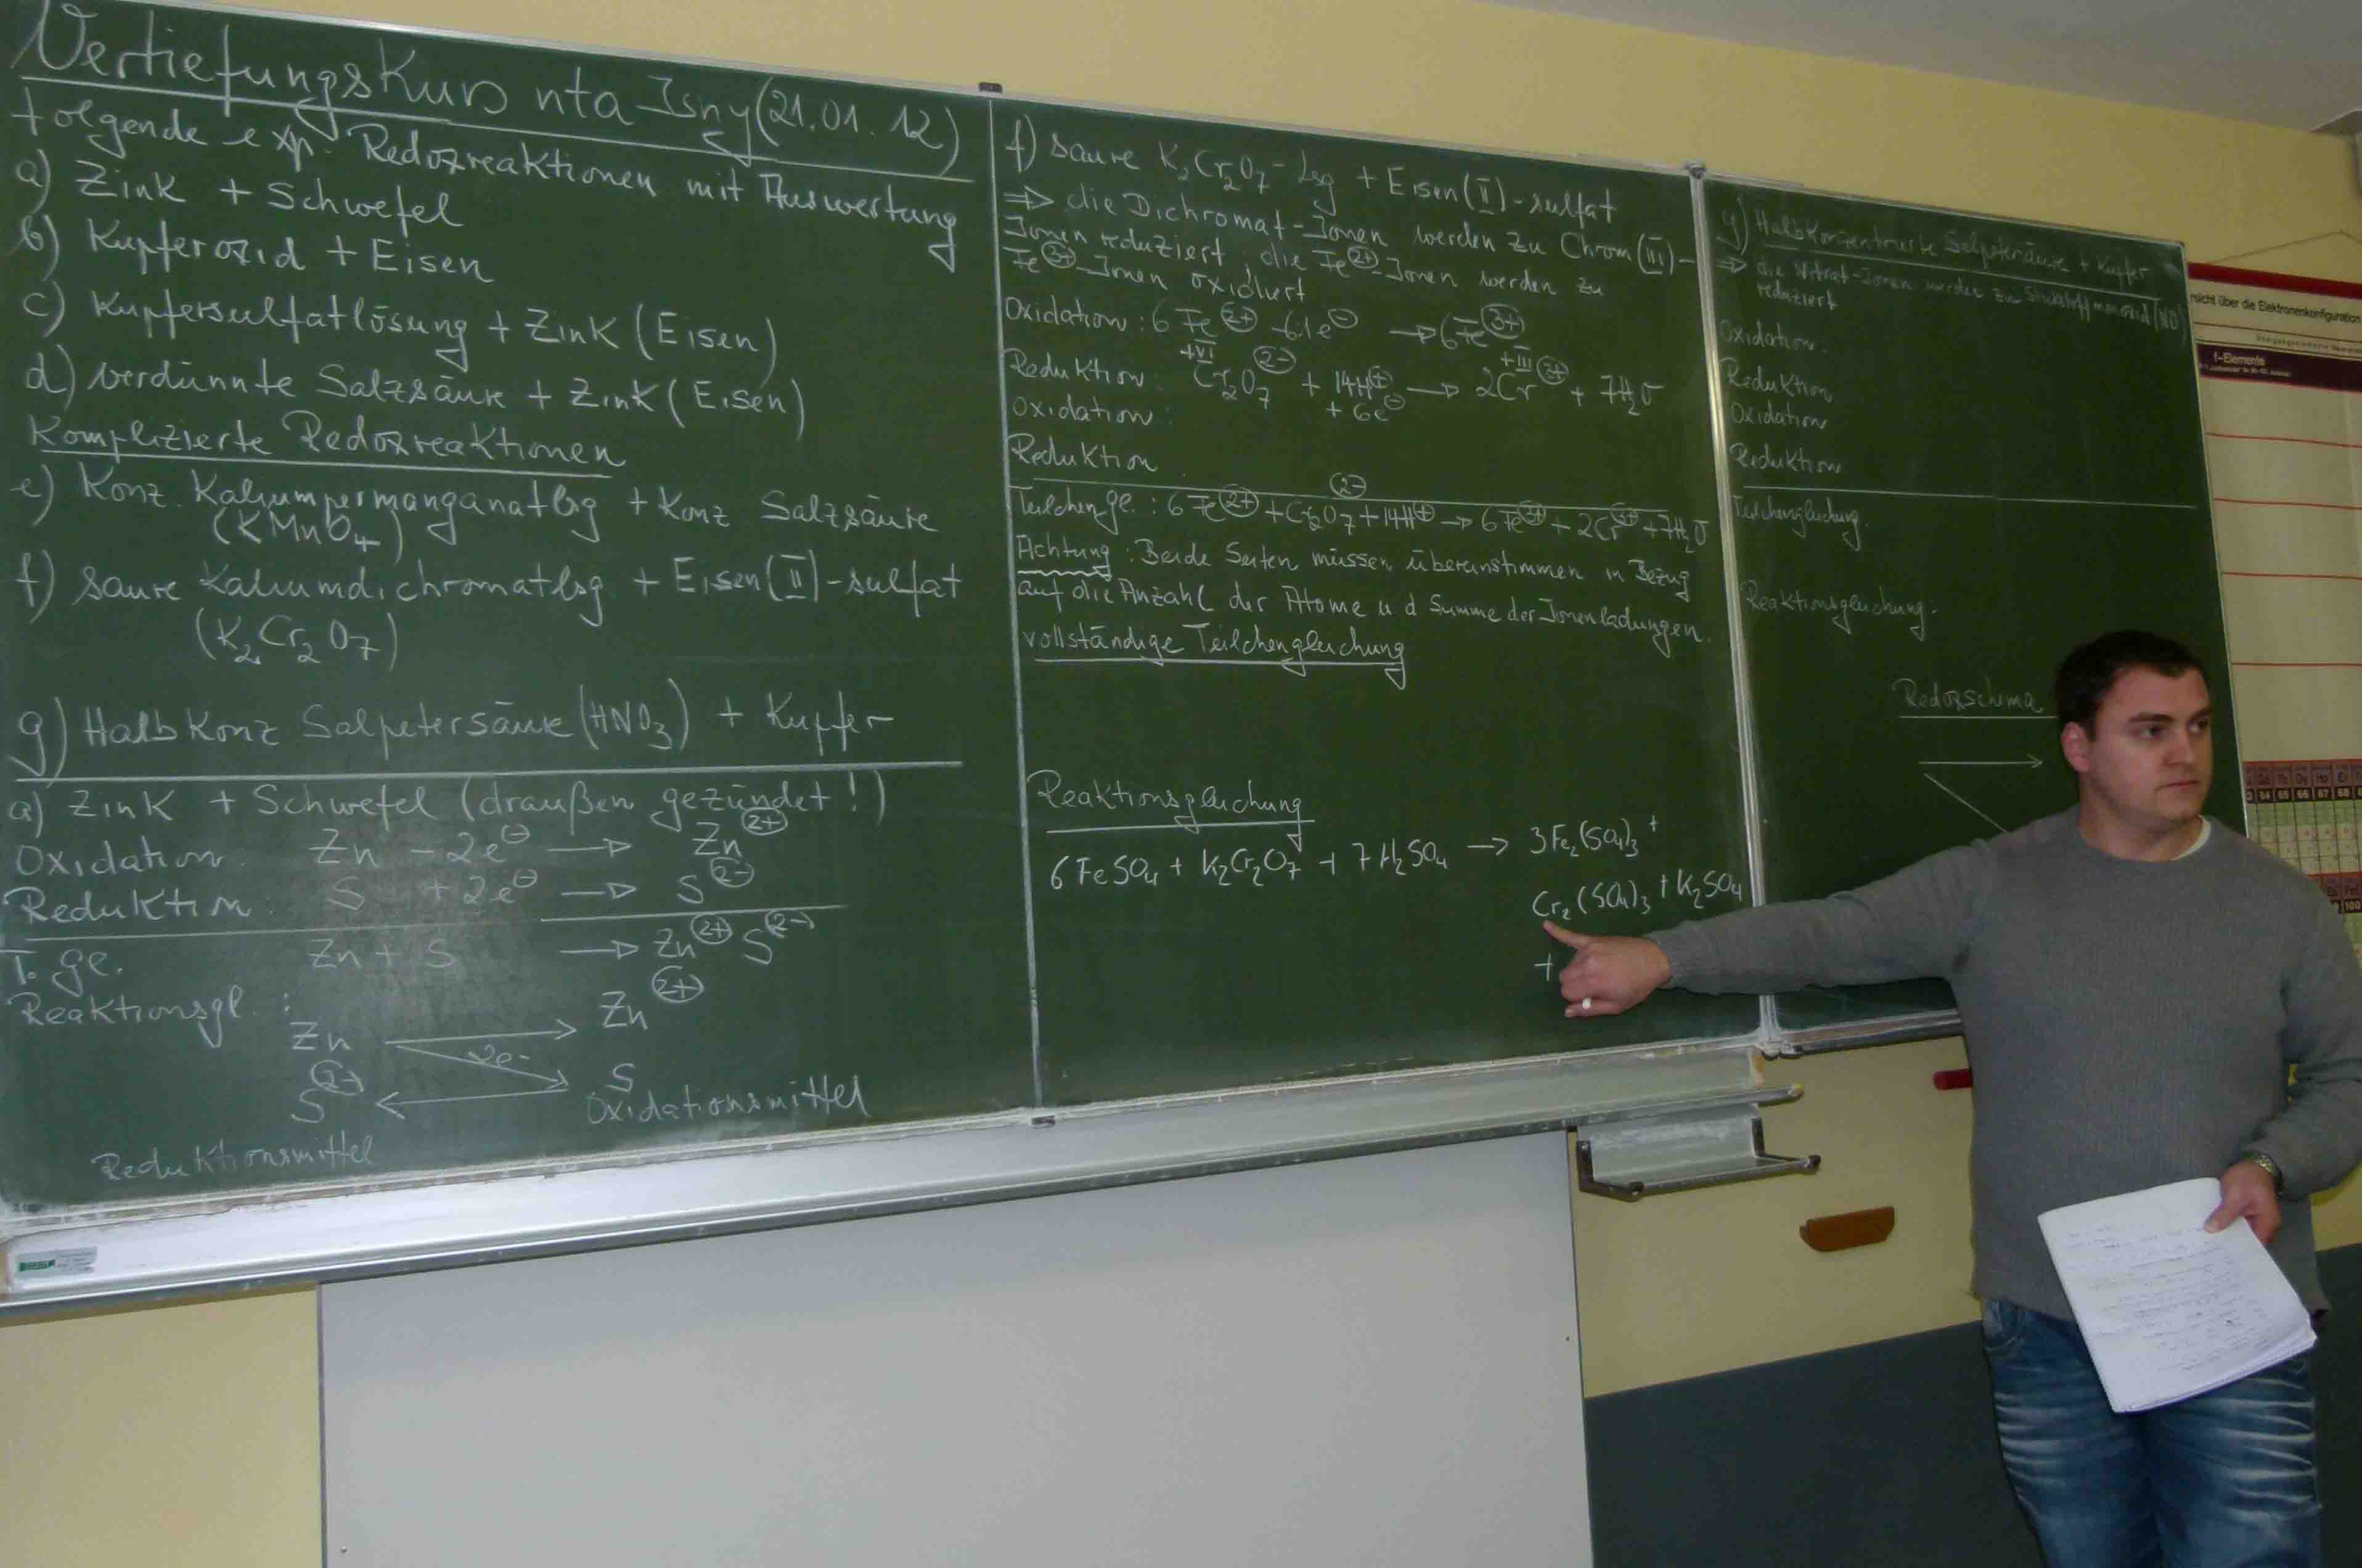 Vertiefungskurs nta Isny (21.01.12)
Folgende exp. Redoxreaktionen mit Auswertung
a) Zink + Schwefel
b) Kupferoxid + Eisen
c) Kupfersulfatlösung + Zink (Eisen)
d) verdünnte Salzsäure + Zink (Eisen)
Komplizierte Redoxreaktionen
e) Konz. Kaliumpermanganatlsg + Konz Salzsäure
(KMnO₄)
f) saure Kaliumdichromatlsg + Eisen(II)-sulfat
(K₂Cr₂O₇)
g) Halbkonz Salpetersäure (HNO₃) + Kupfer
a) Zink + Schwefel (draußen gezündet!)
Oxidation: Zn - 2e⊖ → Zn²⁺
Reduktion: S + 2e⊖ → S²⁻
T. ge. Zn + S → Zn²⁺ S²⁻
Reaktionsgl.:
Zn → Zn²⁺
2e-
S²⁻ ← S
Oxidationsmittel
Reduktionsmittel
f) saure K₂Cr₂O₇-Lsg + Eisen(II)-sulfat
⇒ die Dichromat-Ionen werden zu Chrom(III)-
Ionen reduziert; die Fe²⁺-Ionen werden zu
Fe³⁺-Ionen oxidiert
Oxidation: 6 Fe²⁺ - 6·1e⊖ → 6 Fe³⁺
+VI +III
Reduktion: Cr₂O₇²⁻ + 14H⁺ → 2Cr³⁺ + 7H₂O
+ 6e⊖
Oxidation:
Reduktion
Teilchenge.: 6 Fe²⁺ + Cr₂O₇²⁻ + 14H⁺ → 6 Fe³⁺ + 2Cr³⁺ + 7H₂O
Achtung: Beide Seiten müssen übereinstimmen in Bezug
auf die Anzahl der Atome u d Summe der Ionenladungen.
vollständige Teilchengleichung
Reaktionsgleichung
6 FeSO₄ + K₂Cr₂O₇ + 7 H₂SO₄ → 3Fe₂(SO₄)₃ +
Cr₂(SO₄)₃ + K₂SO₄
+
g) Halbkonzentrierte Salpetersäure + Kupfer
⇒ die Nitrat-Ionen werden zu Stickstoffmonoxid (NO)
reduziert
Oxidation:
Reduktion
Oxidation
Reduktion:
Teilchengleichung:
Reaktionsgleichung:
Redoxschema
rsicht über die Elektronenkonfiguration
f-Elemente
64 65 66 67 68
100